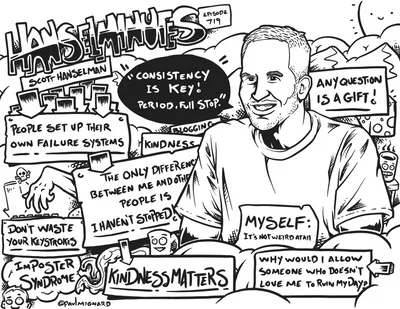 HANSELMINUTES
EPISODE
719
SCOTT HANSELMAN
"CONSISTENCY
IS KEY!
PERIOD, FULL STOP."
ANY QUESTION
IS A GIFT!
PEOPLE SET UP THEIR
OWN FAILURE SYSTEMS
BLOGGING
KINDNESS
THE ONLY DIFFERENCE
BETWEEN ME AND OTHER
PEOPLE IS
I HAVEN'T STOPPED!
DON'T WASTE
YOUR KEYSTROKES
MYSELF:
IT'S NOT WEIRD AT ALL
IMPOSTER
SYNDROME
KINDNESS MATTERS
WHY WOULD I ALLOW
SOMEONE WHO DOESN'T
LOVE ME TO RUIN MY DAY?
@PAULMIGNARD